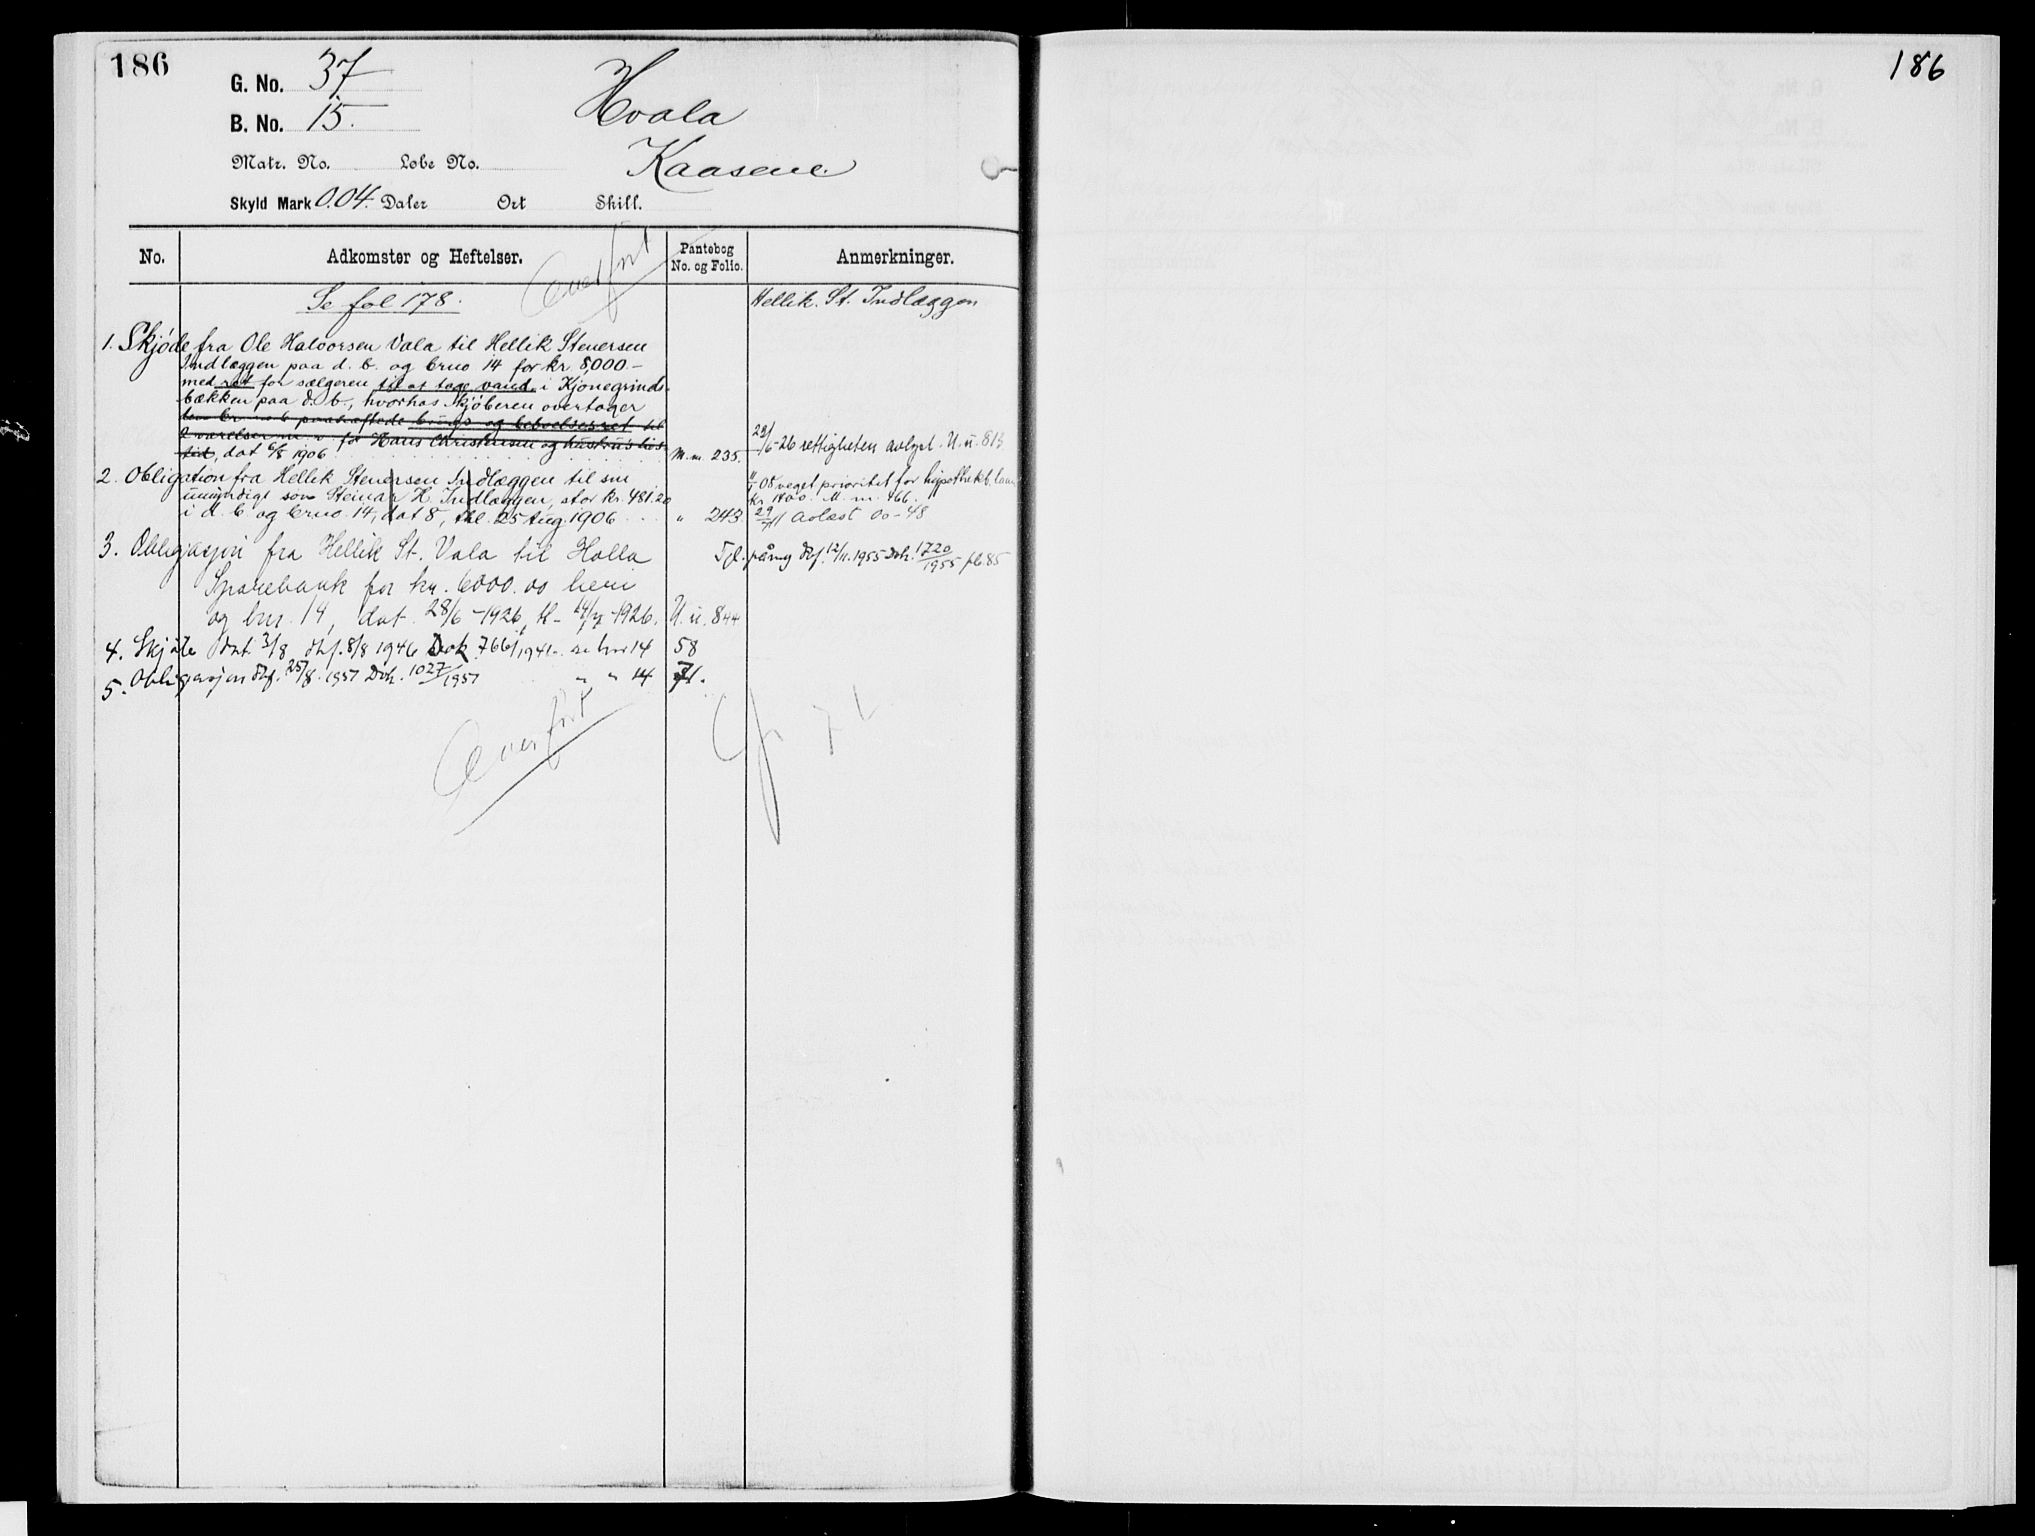 186
186
G. No. 37
B. No. 15.
Hvala
Kaasene.
Matr. No. Løbe No.
Skyld Mark 0.04. Daler Ort Skill.
No. Adkomster og Heftelser. Pantebog No. og Folio. Anmerkninger.
Overført
Se fol 178. Hellik. St. Indlæggen
1. Skjøde fra Ole Halvorsen Vala til Hellik Stenersen
Indlæggen paa d. b. og brno 14 for kr 8,000.-
med ret for sælgeren til at tage vand i Kjonegrinds-
bækken paa d. b., hvorhos kjøberen overtager
bruks og beboelsesret til
2 værelser for Hans Christensen og hustrus livs-
tid, dat 6/8 1906 M. m. 235. 29/6-26 rettigheten avlyst. N. n. 813
2. Obligation fra Hellik Stenersen Indlæggen til sin
umyndige søn Steinar H. Indlæggen, stor kr. 481.20
i d. b. og brno. 14, dat 8, thl. 25 Aug. 1906 " 243
08 veget prioritet for hypothekb. laan
kr. 1400. M. m. 466.
29/11 Avlæst 00-48
3. Obligasjon fra Hellik St. Vala til Holla
Sparebank for kr. 6000.00 heri
og bnr. 14, dat. 28/6-1926, tl- 14/7-1926. N. n. 844
Tgl. påny dbf. 12/11.1955 Dok. 1720/1955 pb.85
4. Skjøte dat. 3/8 dbf. 8/8 1946 Dok 766/1946 se bnr 14 58
5. Obligasjon dbf. 25/8.1957 Dok. 1027/1957 " " 14 71.
Overført
71